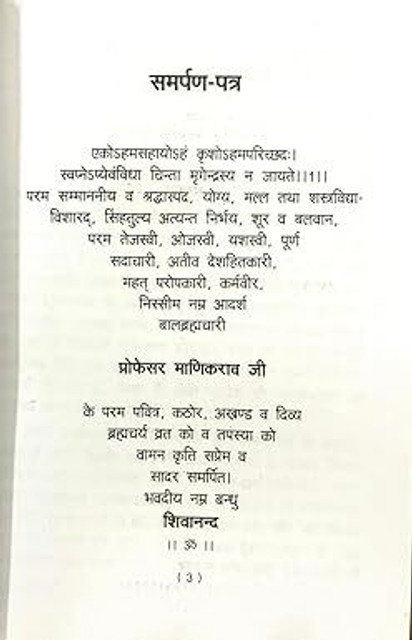 समर्पण-पत्र
एकोऽहमसहायोऽहं कृशोऽहमपरिच्छदः।
स्वप्नेऽप्येवंविधा चिन्ता मृगेन्द्रस्य न जायते।।1।।
परम सम्माननीय व श्रद्धास्पद, योग्य, मल्ल तथा शस्त्रविद्या-
विशारद्, सिंहतुल्य अत्यन्त निर्भय, शूर व बलवान,
परम तेजस्वी, ओजस्वी, यशस्वी, पूर्ण
सदाचारी, अतीव देशहितकारी,
महत् परोपकारी, कर्मवीर,
निस्सीम नम्र आदर्श
बालब्रह्मचारी
प्रोफेसर माणिकराव जी
के परम पवित्र, कठोर, अखण्ड व दिव्य
ब्रह्मचर्य व्रत को व तपस्या को
वामन कृति सप्रेम व
सादर समर्पित।
भवदीय नम्र बन्धु
शिवानन्द
।। ॐ ।।
( 3 )